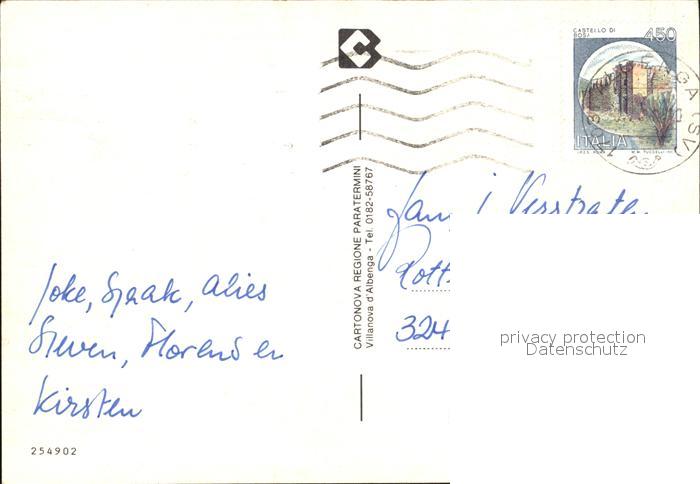 CASTELLO DI
BOSA
450
ITALIA
CARTONOVA REGIONE PARATERMINI
Villanova d'Albenga - Tel. 0182-58767
Joke, Sjaak, Alies
Steven, Florens en
Kirsten
Verstraten
324
privacy protection
Datenschutz
254902